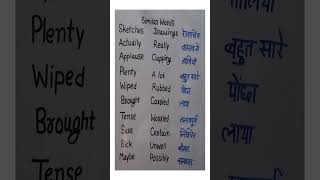 Similar Words
Sketches Drawings रेखाचित्र
Actually Really वास्तव में
Applause Clapping तालियाँ
Plenty A lot बहुत सारे
Wiped Rubbed पोंछा
Brought Carried लाया
Tense Worried तनावपूर्ण
Sure Certain निश्चित
Sick Unwell बीमार
Maybe Possibly
Plenty
Wiped
Brought
Tense
बहुत सारे
पोंछा
लाया